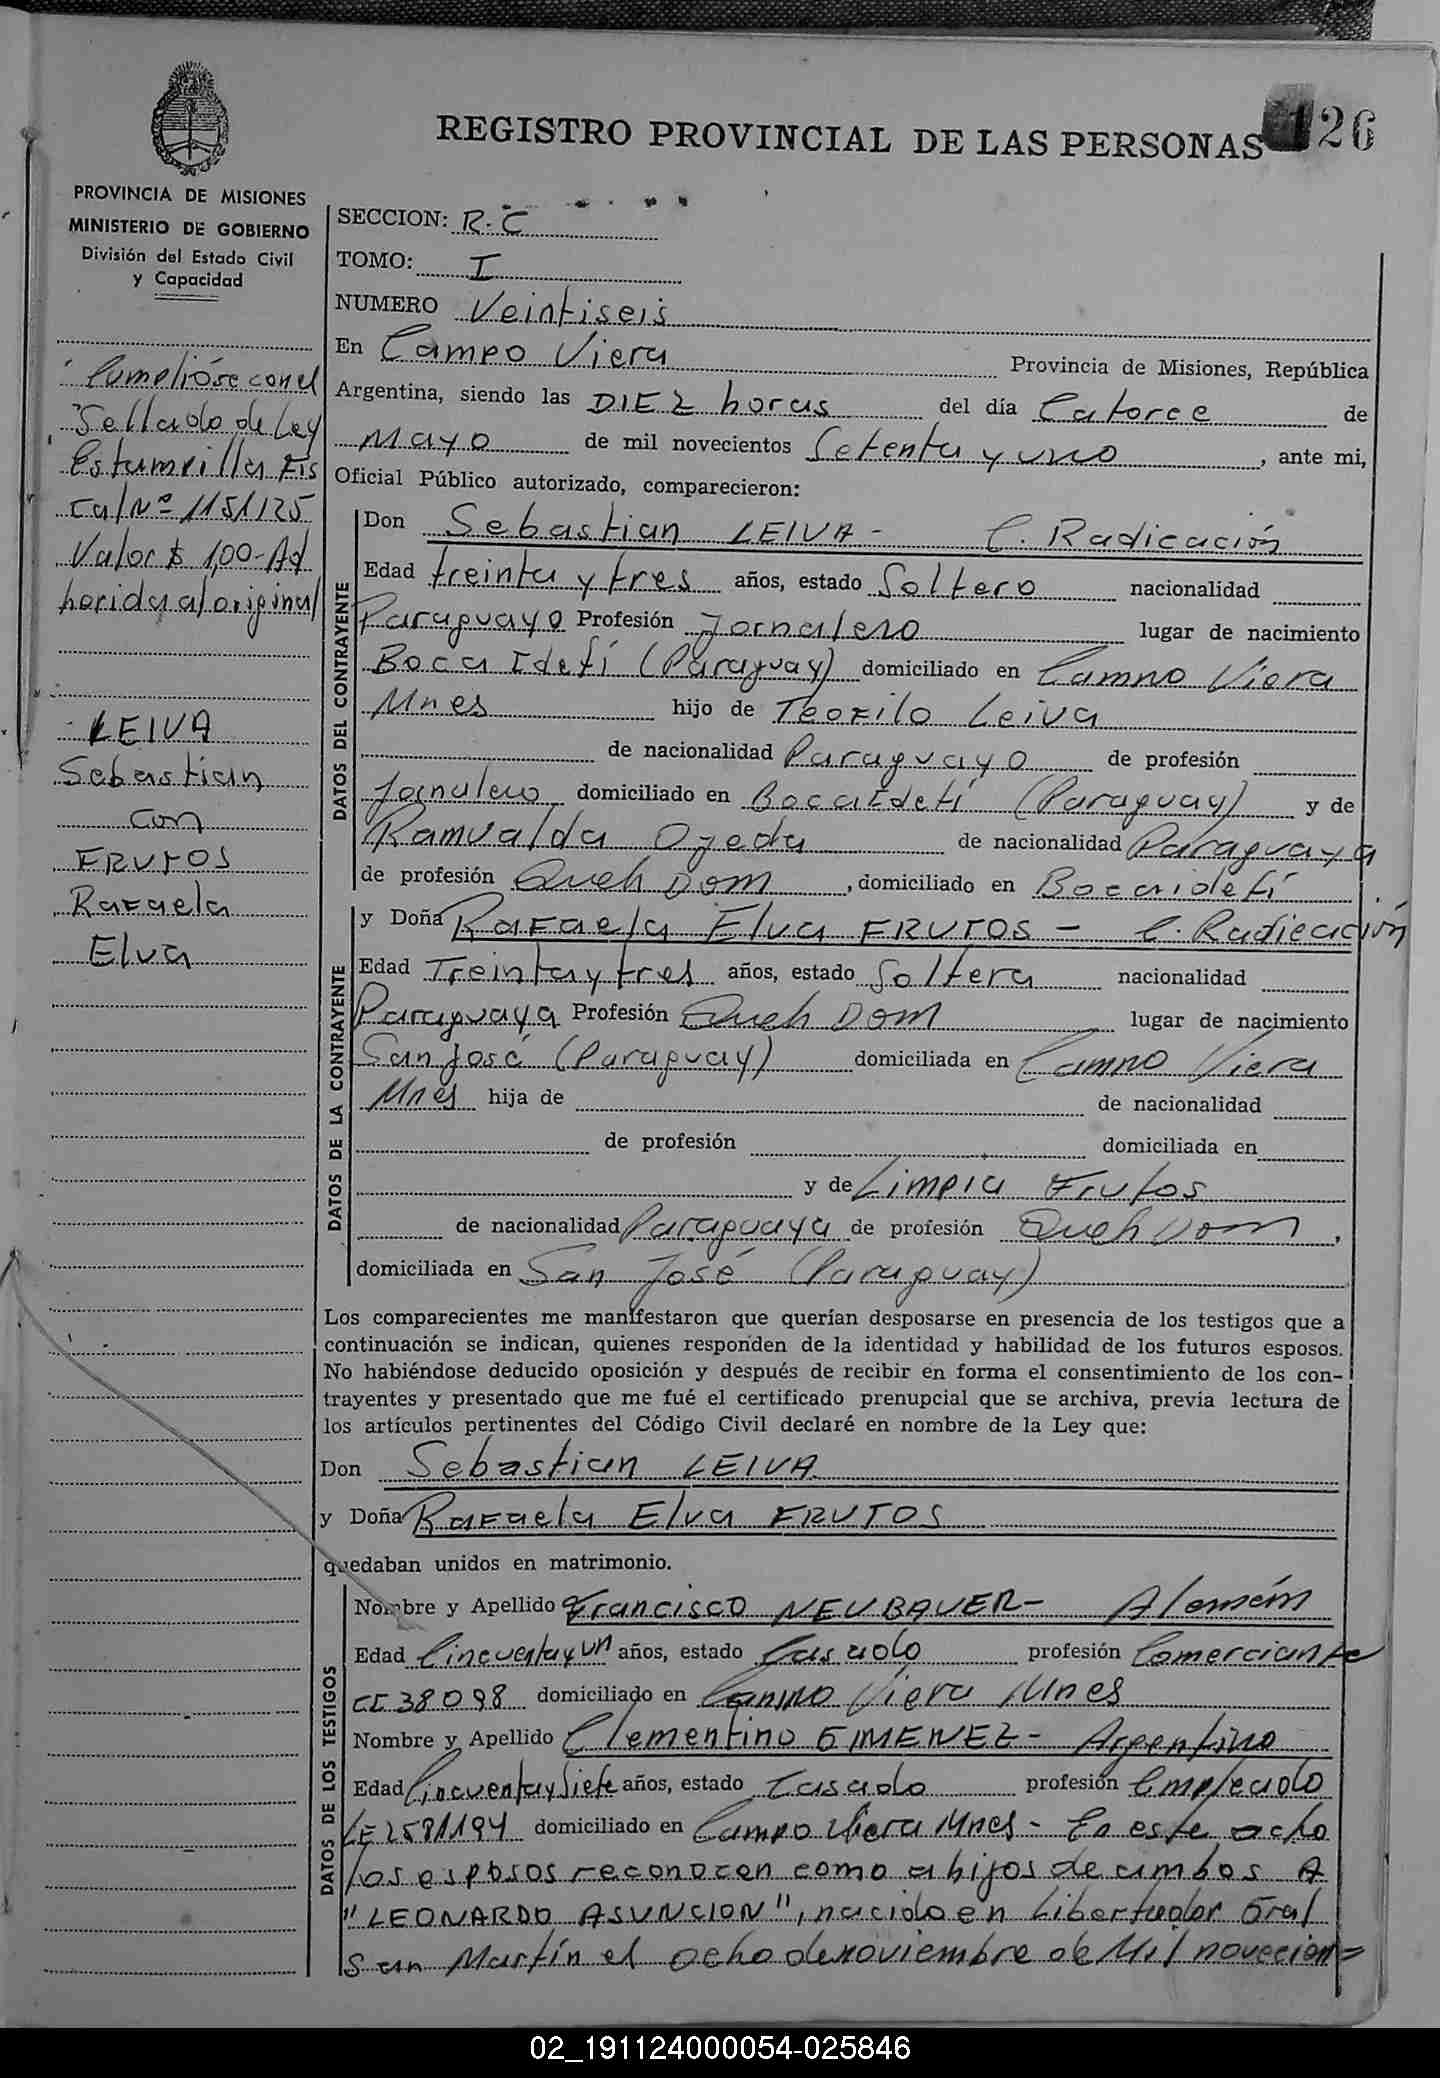 REGISTRO PROVINCIAL DE LAS PERSONAS 126
PROVINCIA DE MISIONES
MINISTERIO DE GOBIERNO
División del Estado Civil
y Capacidad
Cumplióse con el
Sellado de Ley
Estampilla Fis
cal Nº 1151125
Valor $ 1,00- Ad
herida al original
LEIVA
Sebastian
con
FRUTOS
Rafaela
Elva
SECCION: R.C
TOMO: I
NUMERO Veintiseis
En Campo Viera Provincia de Misiones, República
Argentina, siendo las DIEZ horas del día Catorce de
Mayo de mil novecientos Setenta y uno, ante mi,
Oficial Público autorizado, comparecieron:
DATOS DEL CONTRAYENTE
Don Sebastian LEIVA - C. Radicación
Edad treinta y tres años, estado Soltero nacionalidad
Paraguayo Profesión Jornalero lugar de nacimiento
(Paraguay) domiciliado en Campo Viera
Mnes hijo de Teofilo Leiva
de nacionalidad Paraguayo de profesión
Jornalero domiciliado en (Paraguay) y de
Ramualda Ojeda de nacionalidad Paraguaya
de profesión Queh Dom, domiciliado en
DATOS DE LA CONTRAYENTE
y Doña Rafaela Elva FRUTOS - C. Radicación
Edad Treinta y tres años, estado Soltera nacionalidad
Paraguaya Profesión Queh Dom lugar de nacimiento
San José (Paraguay) domiciliada en Campo Viera
Mnes hija de de nacionalidad
de profesión domiciliada en
y de Limpia Frutos
de nacionalidad Paraguaya de profesión Queh Dom,
domiciliada en San José (Paraguay)
Los comparecientes me manifestaron que querían desposarse en presencia de los testigos que a
continuación se indican, quienes responden de la identidad y habilidad de los futuros esposos.
No habiéndose deducido oposición y después de recibir en forma el consentimiento de los con-
trayentes y presentado que me fué el certificado prenupcial que se archiva, previa lectura de
los artículos pertinentes del Código Civil declaré en nombre de la Ley que:
Don Sebastian LEIVA
y Doña Rafaela Elva FRUTOS
quedaban unidos en matrimonio.
DATOS DE LOS TESTIGOS
Nombre y Apellido Francisco NEUBAUER- Alemán
Edad Cincuenta y un años, estado Casado profesión Comerciante
CI 38098 domiciliado en Campo Viera Mnes
Nombre y Apellido Clementino GIMENEZ- Argentino
Edad Cincuenta y Siete años, estado Casado profesión Empleado
LE 2581194 domiciliado en Campo Viera Mnes- En este acto
los esposos reconocen como a hijos de ambos A
"LEONARDO ASUNCION", nacido en Libertador Gral
San Martín el ocho de noviembre de Mil novecien=
02_191124000054-025846